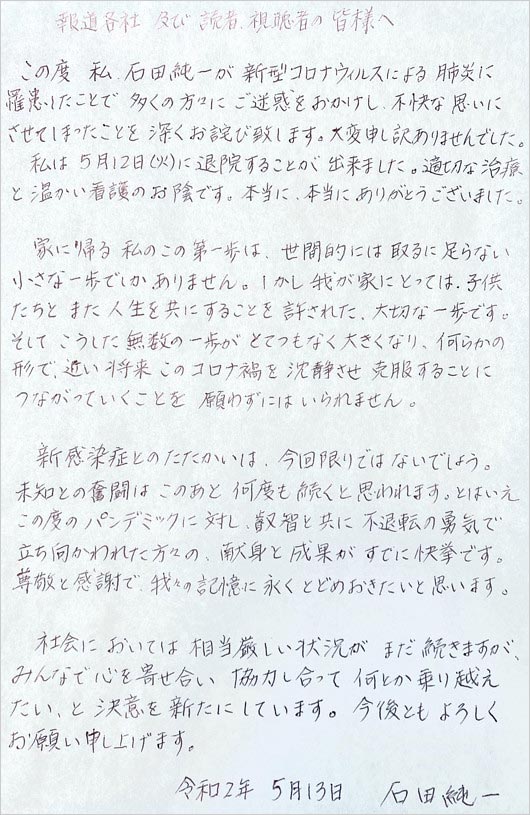 報道各社 及び 読者、視聴者の皆様へ
この度 私、石田純一が 新型コロナウィルスによる 肺炎に
罹患したことで 多くの方々に ご迷惑をおかけし、不快な思いに
させてしまったことを 深くお詫び致します。大変申し訳ありませんでした。
私は 5月12日(火)に 退院することが 出来ました。適切な治療
と 温かい看護の お陰です。本当に、本当に ありがとうございました。
家に帰る 私のこの第一歩は、世間的には 取るに足らない
小さな一歩でしかありません。しかし 我が家にとっては、子供
たちと また 人生を共にすることを 許された、大切な一歩です。
そして こうした 無数の一歩が とてつもなく大きくなり、何らかの
形で、近い将来 このコロナ禍を 沈静させ 克服することに
つながっていくことを 願わずには いられません。
新感染症との たたかいは、今回限りでは ないでしょう。
未知との奮闘は このあと 何度も続くと思われます。とはいえ
この度の パンデミックに 対し、叡智と共に 不退転の勇気で
立ち向かわれた 方々の、献身と成果が すでに 快挙です。
尊敬と感謝で、我々の記憶に 永く とどめおきたいと 思います。
社会に おいては 相当厳しい状況が まだ 続きますが、
みんなで 心を寄せ合い 協力し合って 何とか乗り越え
たい、と 決意を新たにしています。今後とも よろしく
お願い申し上げます。
令和2年 5月13日 石田純一